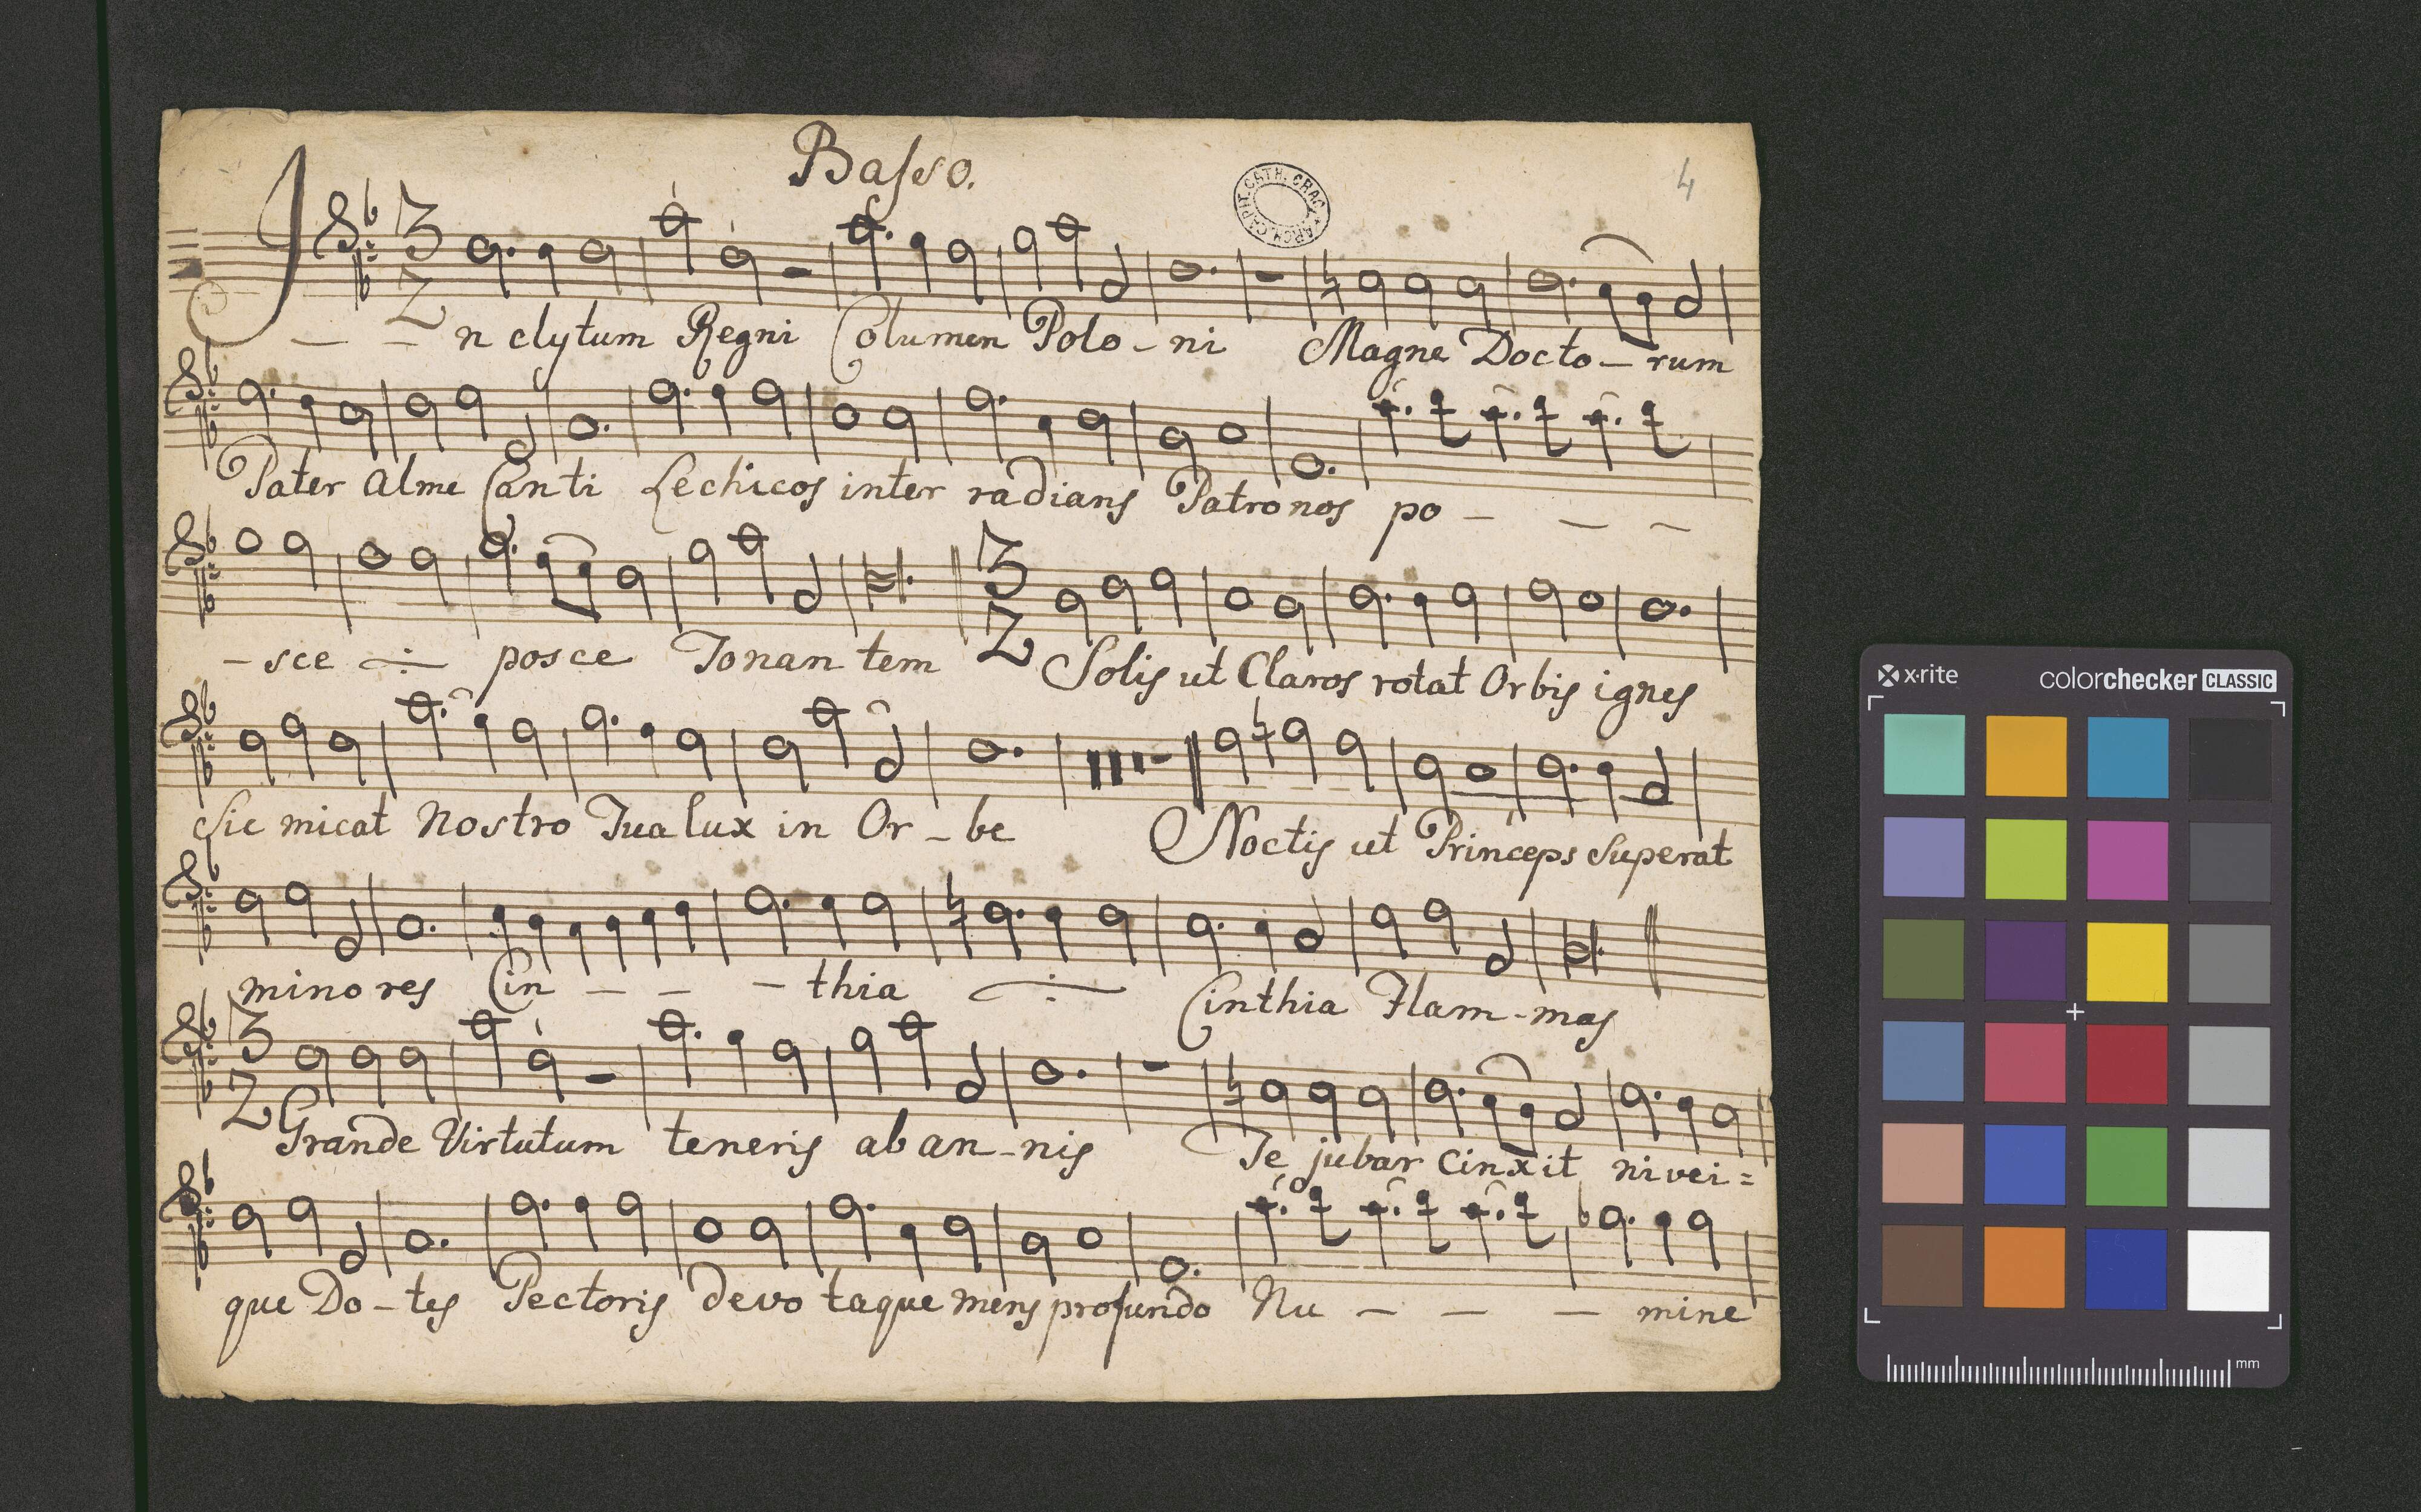 Basso.
4
ARCH. CAPIT. CATH. CRAC.
3
2
I — — n clytum Regni Columen Polo - ni Magne Docto - rum
Pater alme Canti Lechicos inter radians Patronos po - — —
- sce posce Tonan tem Solis ut Claros rotat Orbis ignes
3
2
Sic micat Nostro Tua lux in Or - be Noctis ut Princeps Superat
minores Cin — — — thia Cinthia Flam - mas
3
2
Grande Virtutum teneris ab an - nis Te jubar Cinxit nivei =
que Do - tes Pectoris devo taque mens profundo Nu — — — mine
x·rite
colorchecker CLASSIC
mm